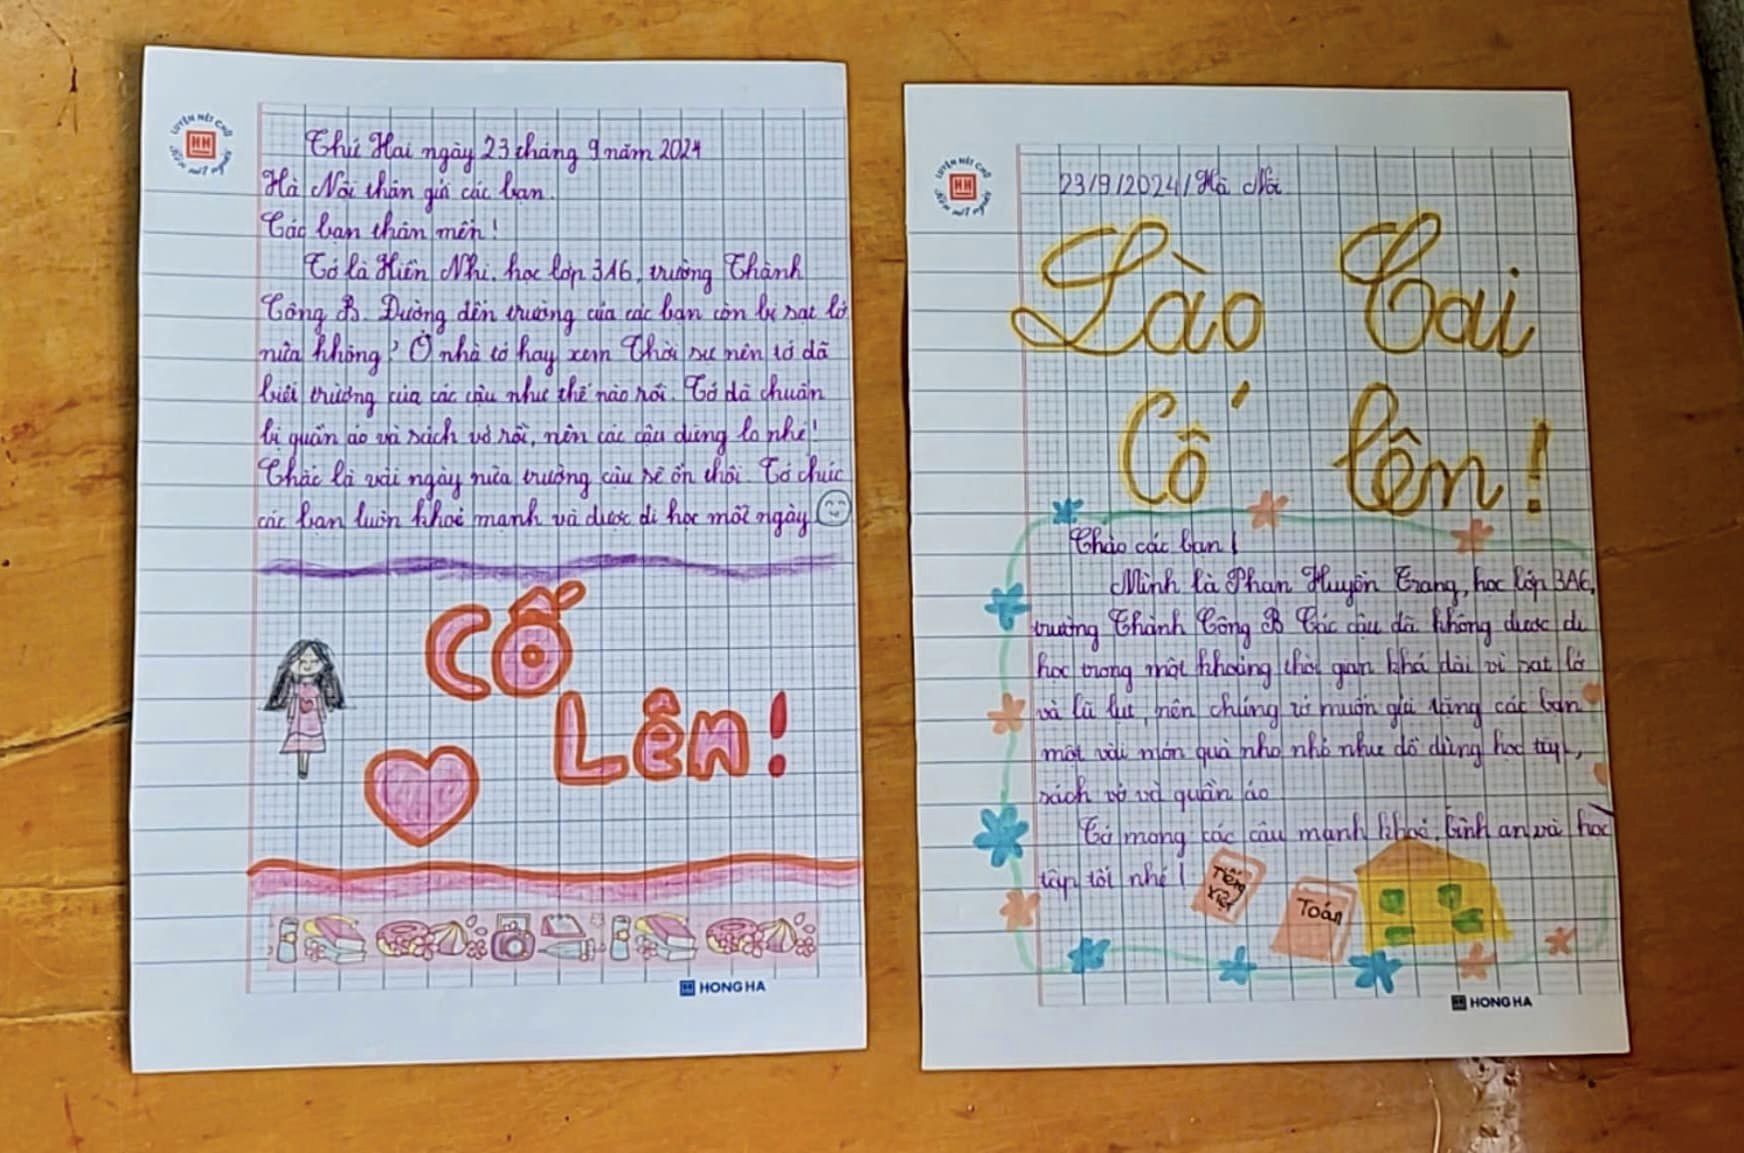 LUYỆN NÉT CHỮ
HH
Thứ Hai ngày 23 tháng 9 năm 2024
Hà Nội thân gửi các bạn.
Các bạn thân mến!
Tớ là Hiền Nhi, học lớp 3A6, trường Thành
Công B. Đường đến trường của các bạn còn bị sạt lở
nữa không? Ở nhà tớ hay xem Thời sự nên tớ đã
biết trường của các cậu như thế nào rồi. Tớ đã chuẩn
bị quần áo và sách vở rồi, nên các cậu đừng lo nhé!
Chắc là vài ngày nữa trường cậu sẽ ổn thôi. Tớ chúc
các bạn luôn khoẻ mạnh và được đi học mỗi ngày
CỐ
LÊN!
HONG HA
LUYỆN NÉT CHỮ
HH
23/9/2024/Hà Nội
Lào Cai
Cố lên!
Chào các bạn!
Mình là Phan Huyền Trang, học lớp 3A6,
trường Thành Công B Các cậu đã không được đi
học trong một khoảng thời gian khá dài vì sạt lở
và lũ lụt, nên chúng tớ muốn gửi tặng các bạn
một vài món quà nho nhỏ như đồ dùng học tập,
sách vở và quần áo
Tớ mong các cậu mạnh khoẻ, bình an và học
tập tốt nhé!
Tiếng
Việt
Toán
HONG HA